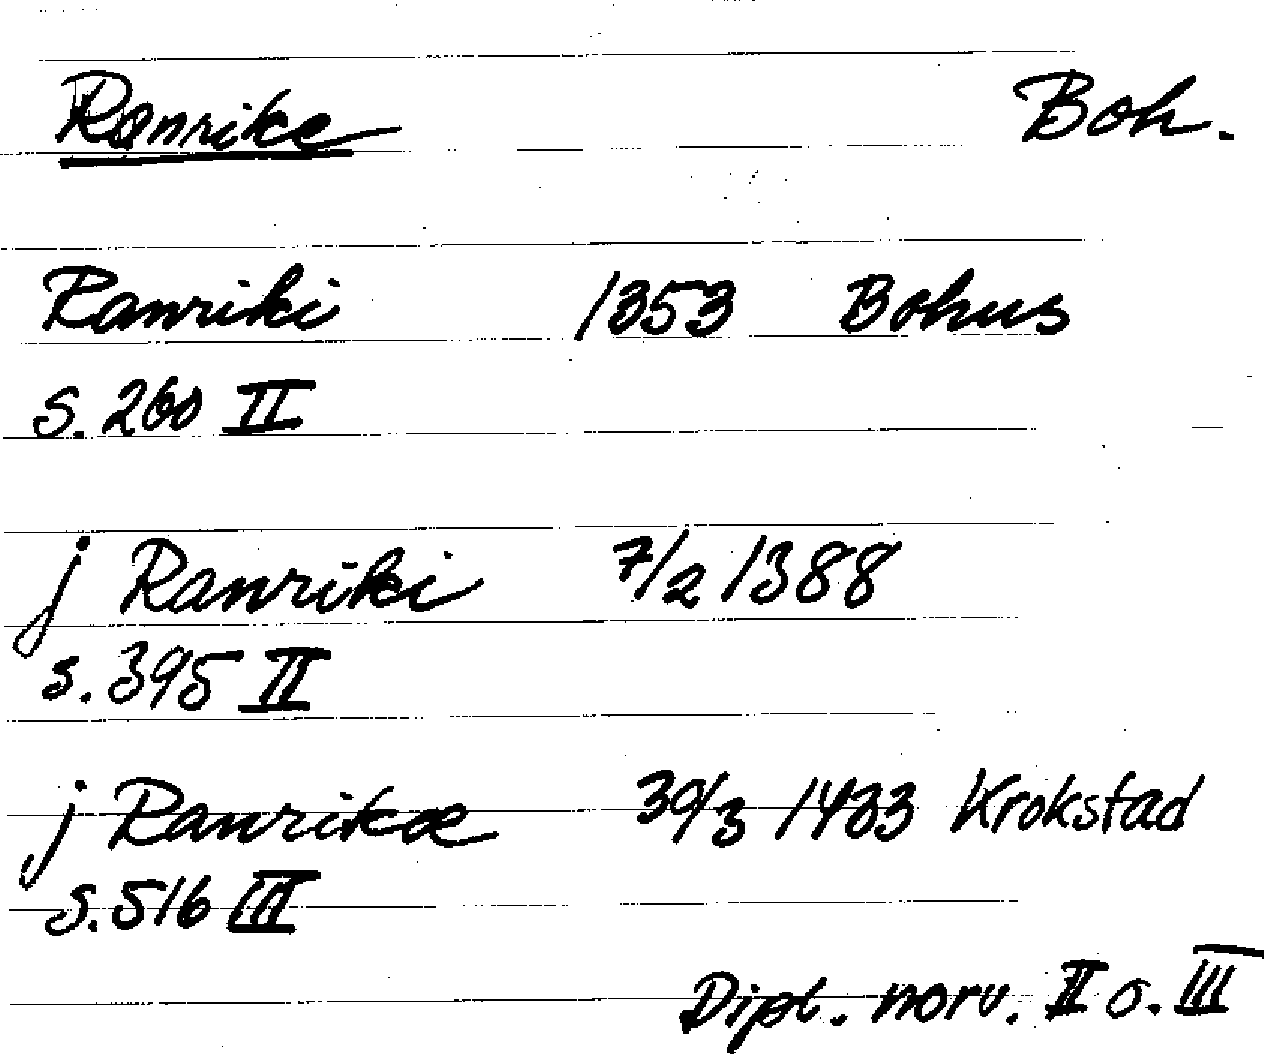 Ranrike Boh.
Ranriki 1353 Bohus
s. 260 II
j Ranriki 7/2 1388
s. 395 II
j Ranrikæ 30/3 1433 Krokstad
s. 516 III
Dipl. norv. II o. III